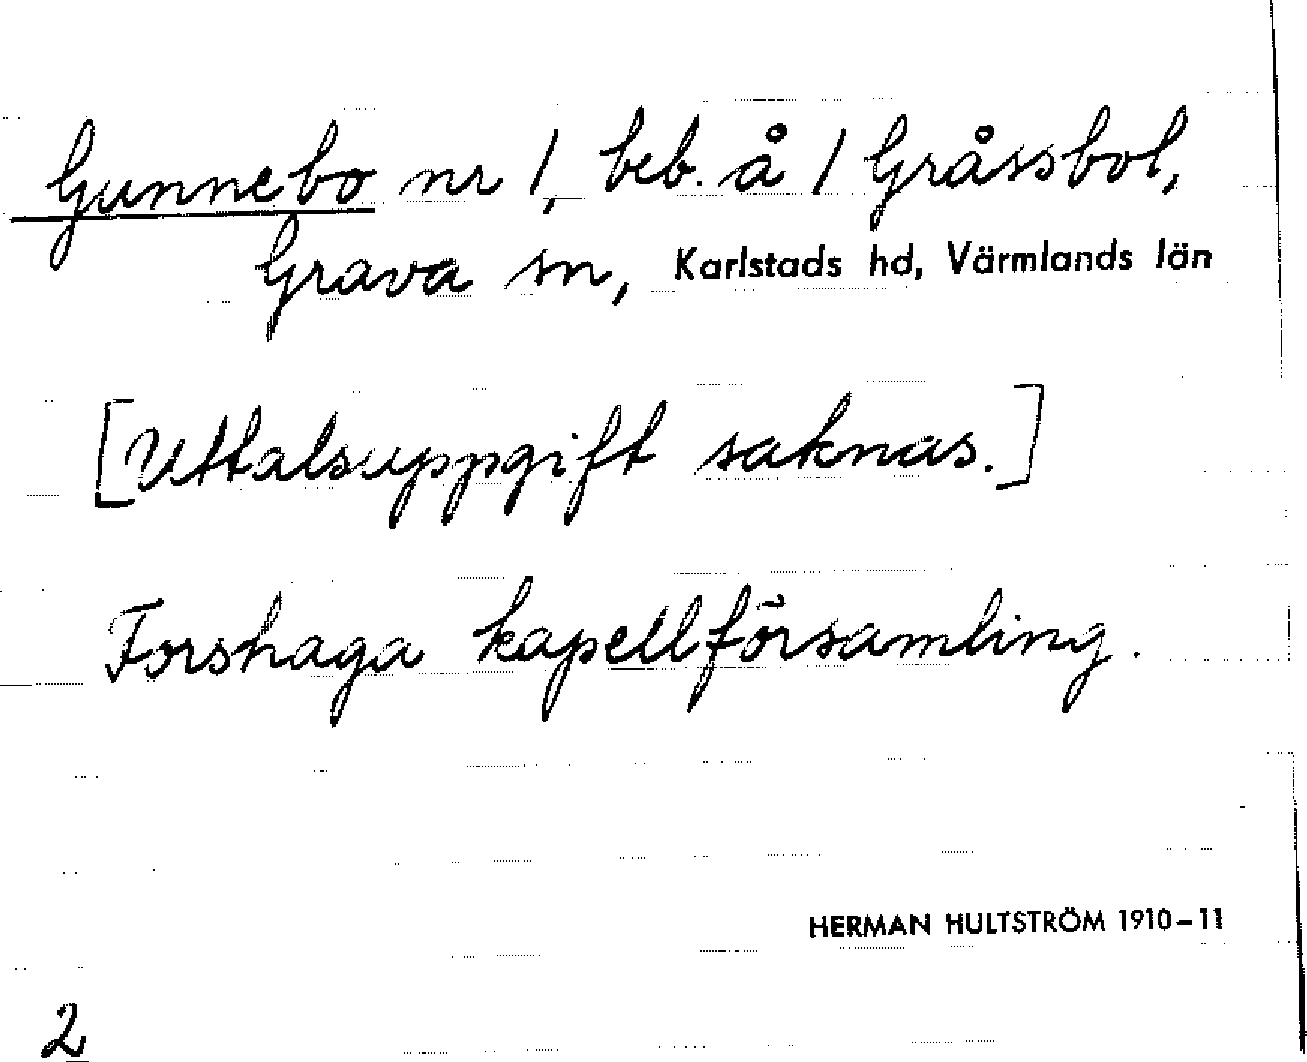 Gunnebo nr 1, beb. å 1 Gråssbol,
Grava sn, Karlstads hd, Värmlands län
[Uttalsuppgift saknas.]
Forshaga kapellförsamling.
HERMAN HULTSTRÖM 1910-11
2